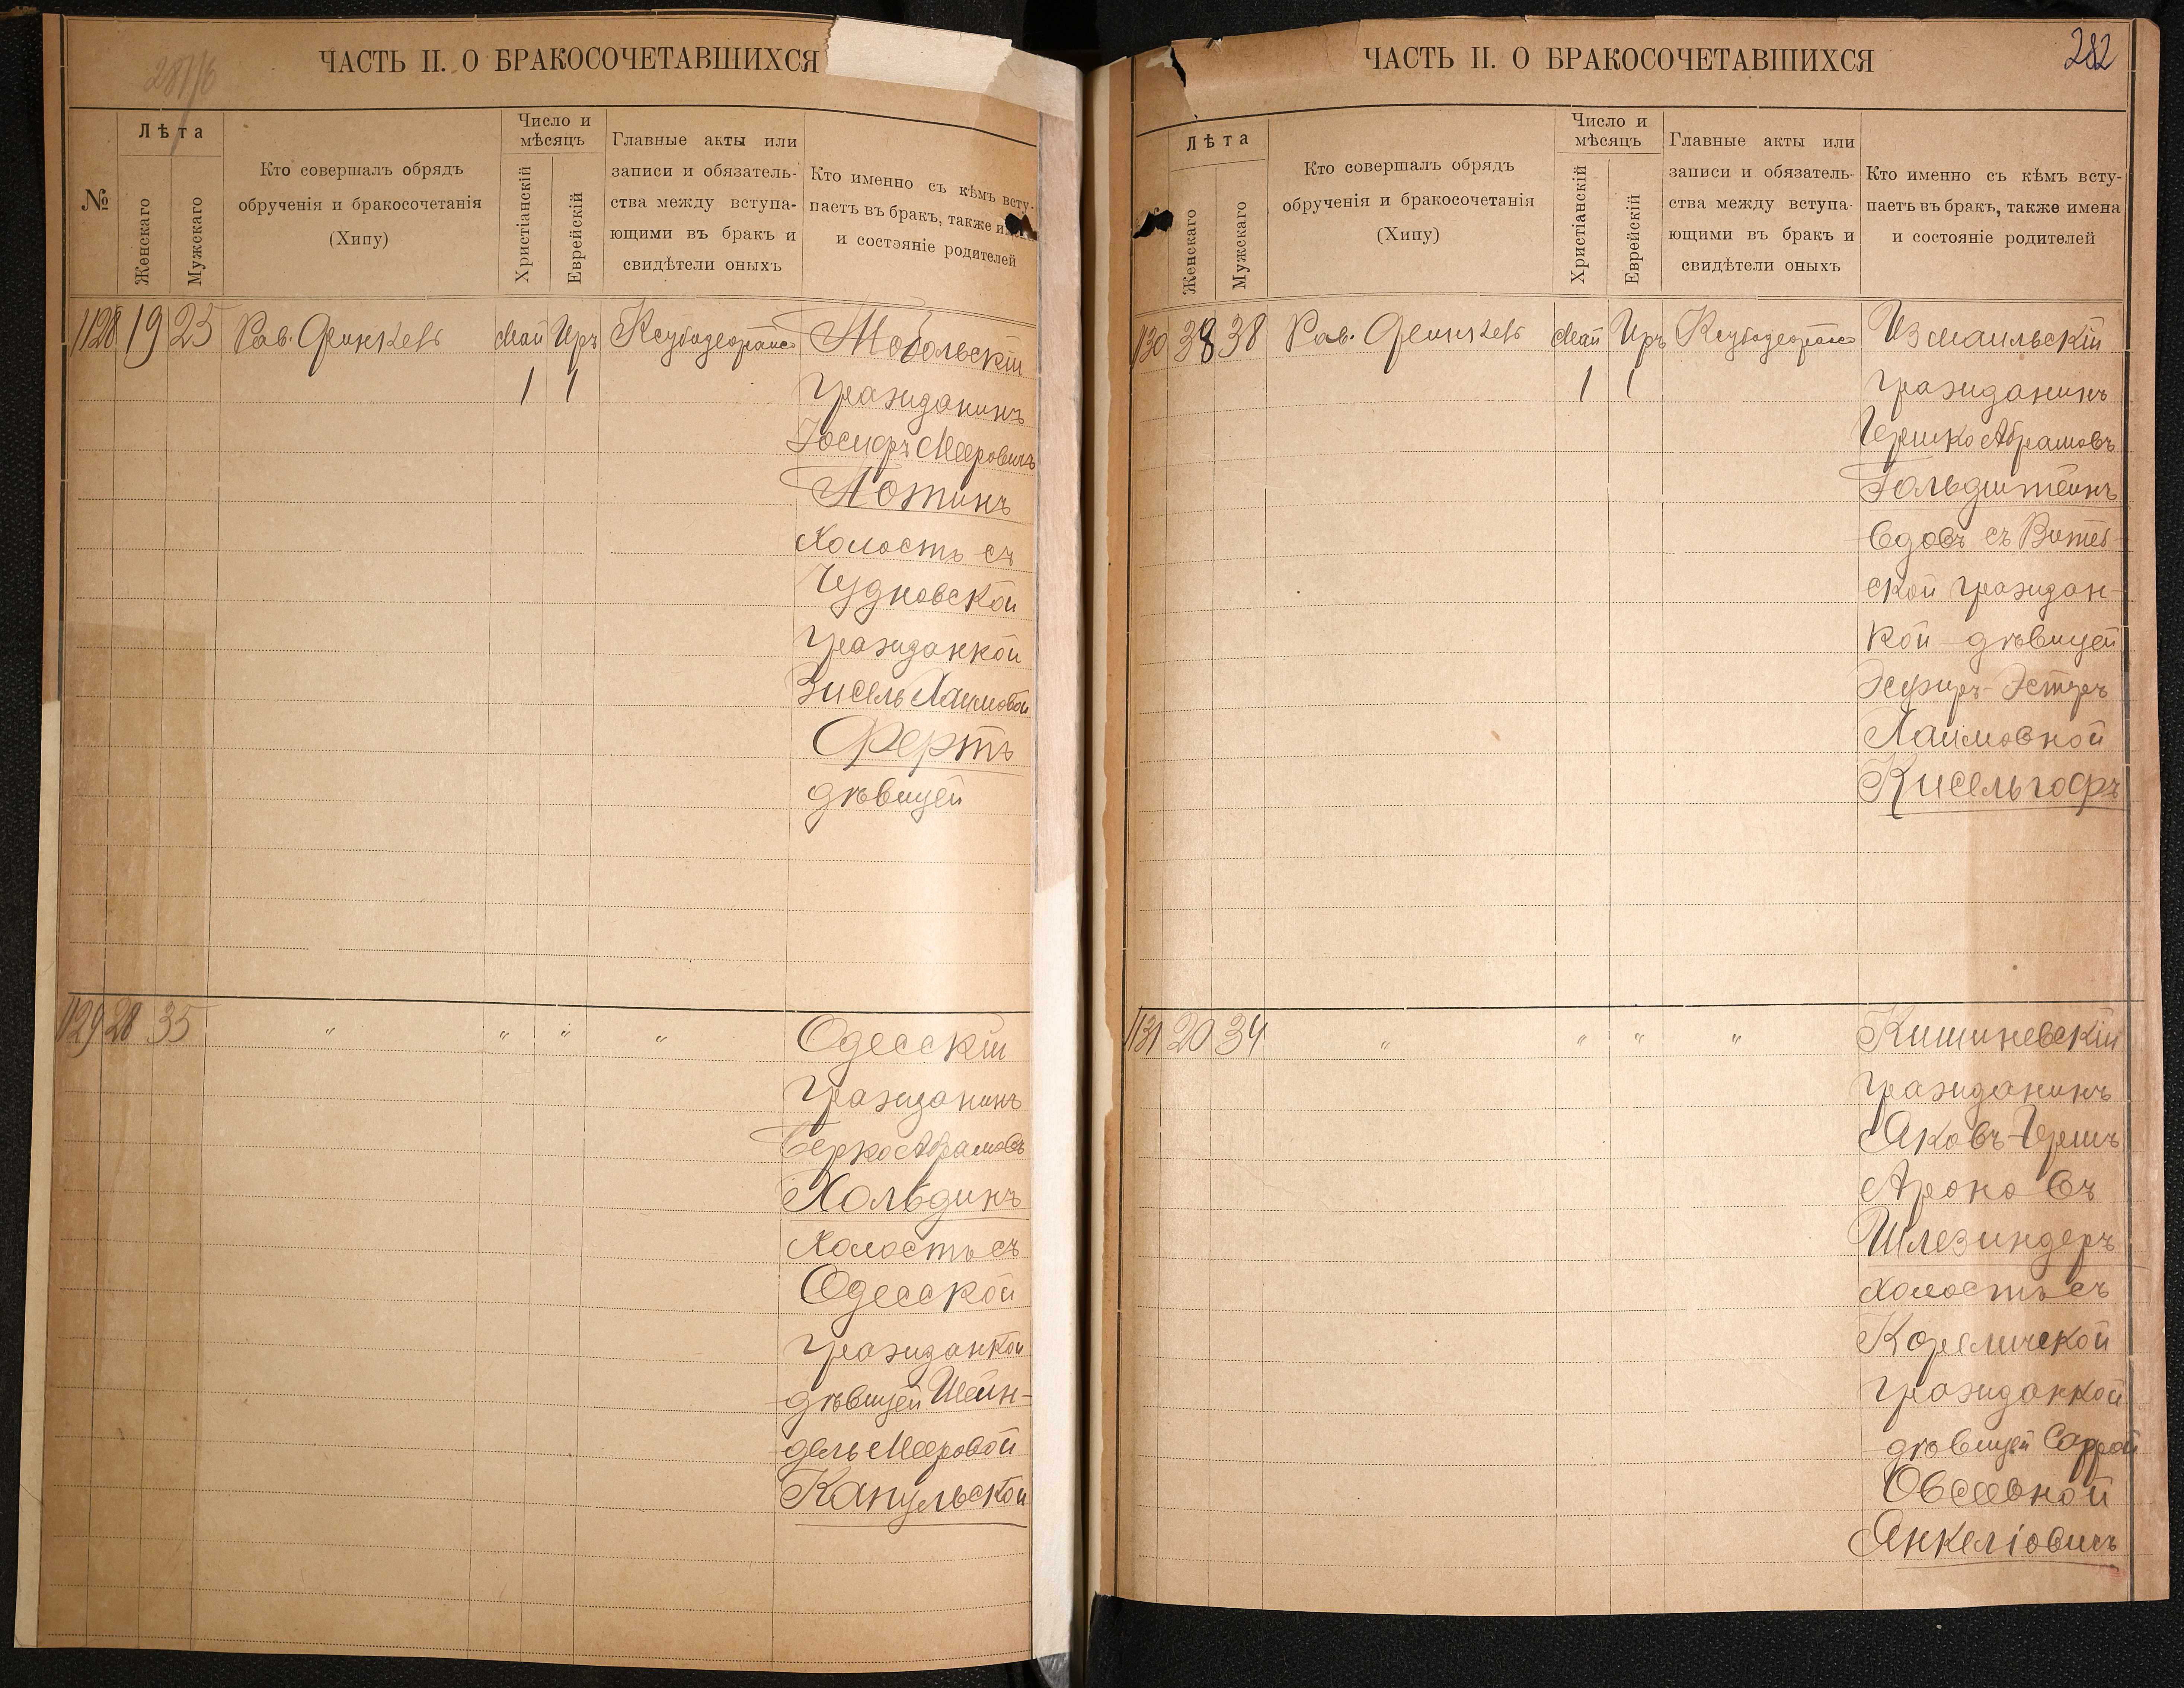 281/6
ЧАСТЬ II. О БРАКОСОЧЕТАВШИХСЯ
№
Лѣта
Женскаго
Мужскаго
Кто совершалъ обрядъ
обрученія и бракосочетанія
(Хипу)
Число и
мѣсяцъ
Христіанскій
Еврейскій
Главные акты или
записи и обязатель-
ства между вступа-
ющими въ бракъ и
свидѣтели оныхъ
Кто именно съ кѣмъ всту-
паетъ въ бракъ, также имена
и состояніе родителей
1128 19 25 Рав. май Иръ
1 1
Тобольскій
гражданинъ
Іосифъ Мееровичъ
Лотинъ
холостъ съ
Чудновской
гражданкой
Зисель Хаимовой
Фертъ
дѣвицей
1129 28 35 " " " "
Одесскій
гражданинъ
Берко Абрамовъ
Хольдинъ
холостъ съ
Одесской
гражданкой
дѣвицей Шейн-
дель Мееровой
Капульской
ЧАСТЬ II. О БРАКОСОЧЕТАВШИХСЯ
282
Лѣта
Женскаго
Мужскаго
Кто совершалъ обрядъ
обрученія и бракосочетанія
(Хипу)
Число и
мѣсяцъ
Христіанскій
Еврейскій
Главные акты или
записи и обязатель-
ства между вступа-
ющими въ бракъ и
свидѣтели оныхъ
Кто именно съ кѣмъ всту-
паетъ въ бракъ, также имена
и состояніе родителей
1130 38 38 Рав. май Иръ
1 1
Измаильскій
гражданинъ
Гершко Абрамовъ
Гольдштейнъ
вдовъ съ Витеб-
ской граждан-
кой дѣвицей
Эсфирь-Эстеръ
Хаимовной
Кисельгофъ
1131 20 34 " " " "
Кишиневскій
гражданинъ
Яковъ-Гершъ
Ароновъ
Шлезингеръ
холостъ съ
Кореличской
гражданкой
дѣвицей Саррой
Овсеевной
Янкеліовичъ